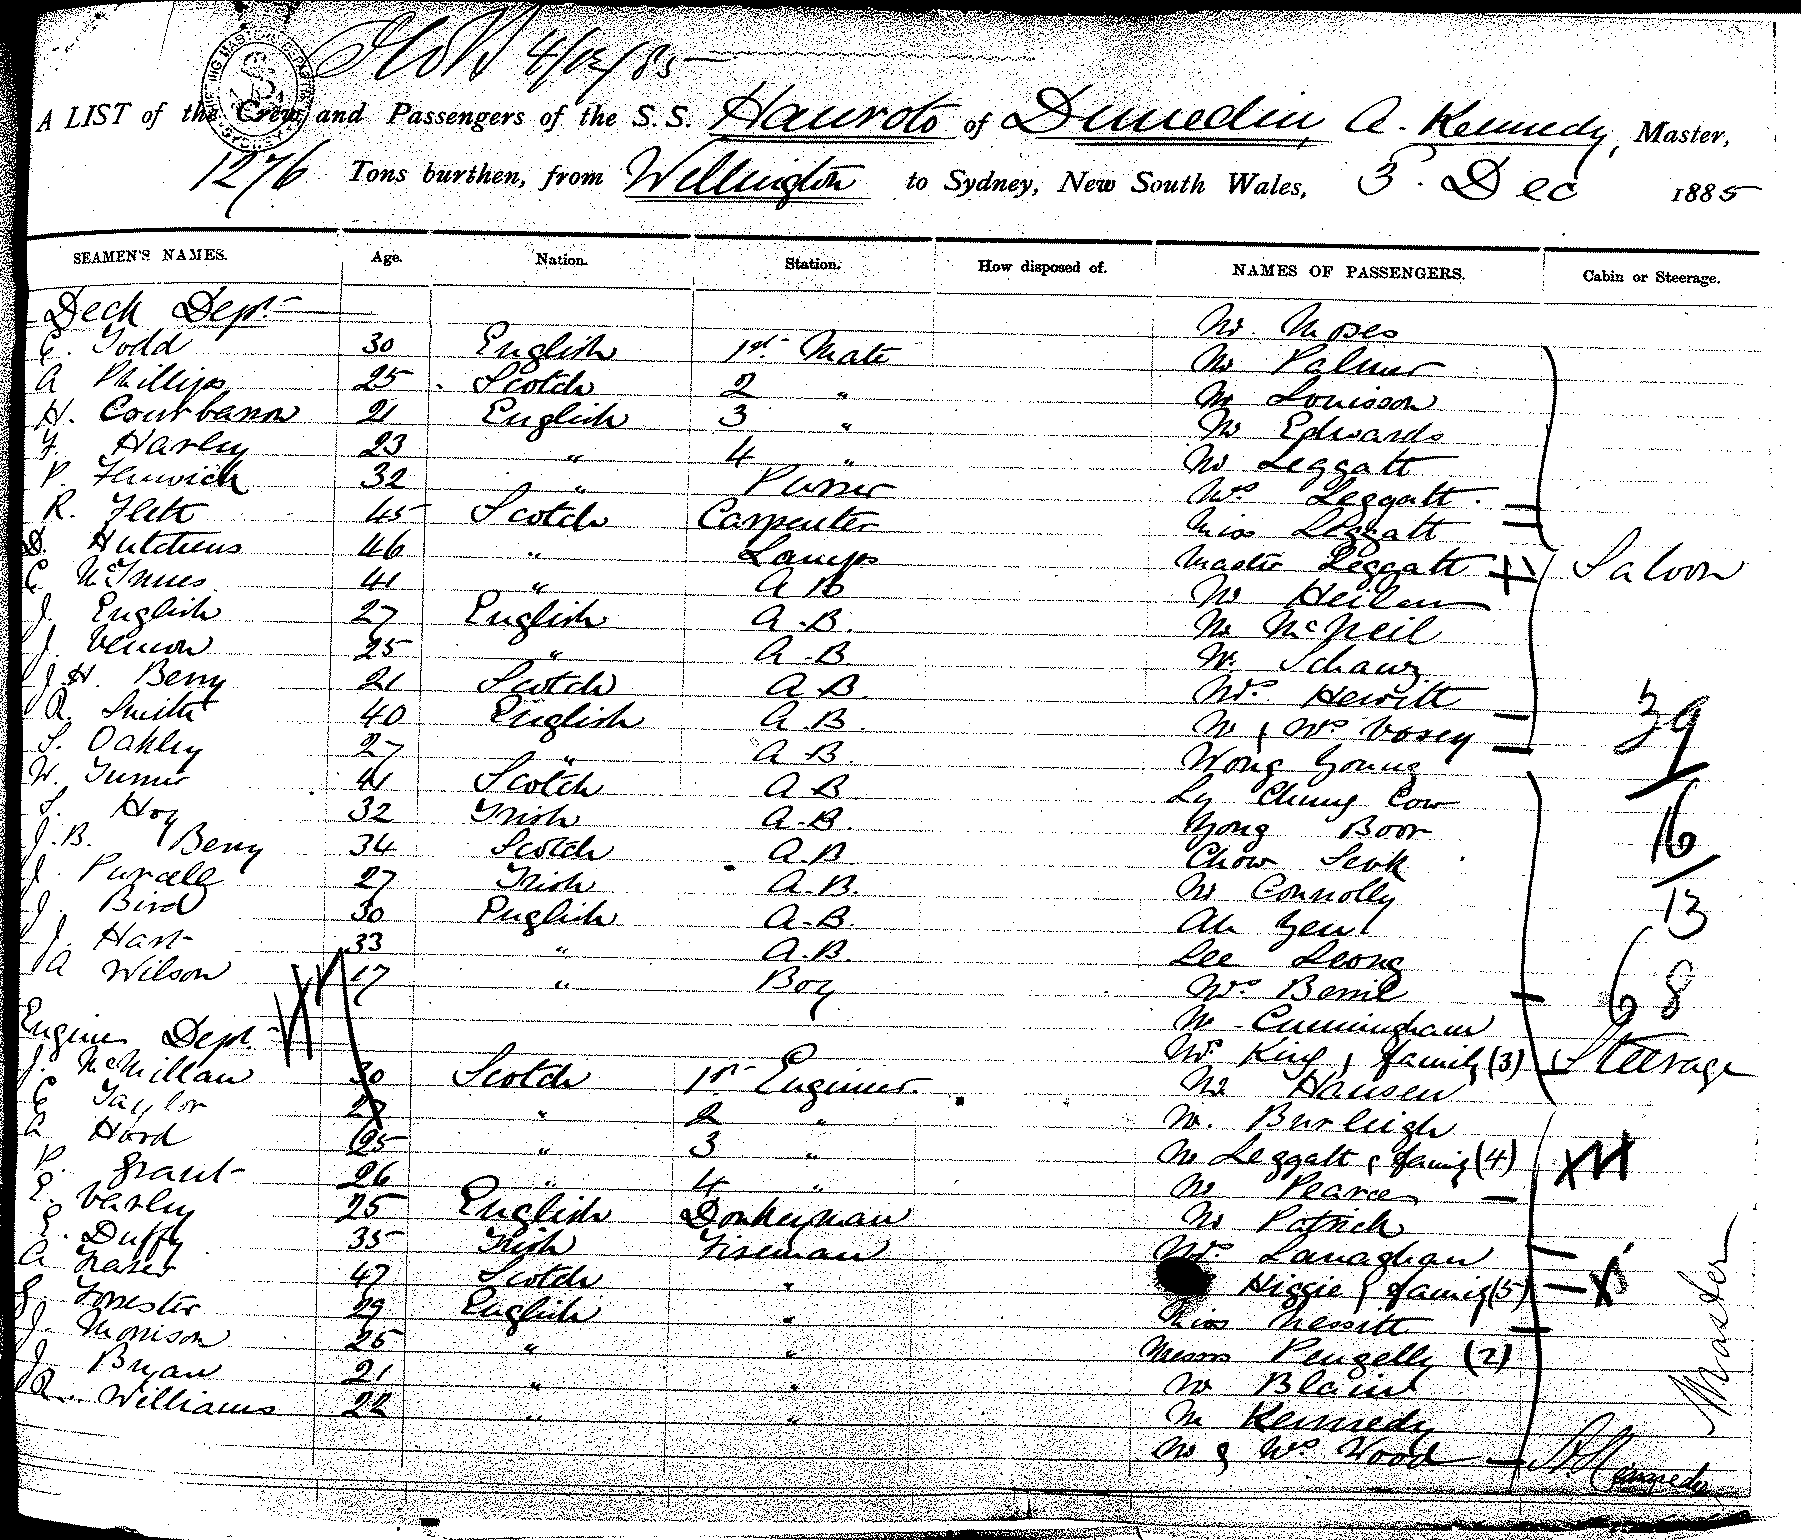 4/12/85
A LIST of the Crew and Passengers of the S.S. Hauroto of Dunedin, A. Kennedy, Master,
1276 Tons burthen, from Wellington to Sydney, New South Wales, 3. Dec 1885
SEAMEN'S NAMES. Age. Nation. Station. How disposed of. NAMES OF PASSENGERS. Cabin or Steerage.
Deck Dept. Mr. Moses
C. Todd 30 English 1st Mate Mr Palmer
A Phillips 25 Scotch 2 " Mr Louisson
H. Courbarron 21 English 3 " Mr Edwards
F. Harley 23 " 4 " Mr Leggatt
P. Fenwick 32 " Purser Mrs Leggatt
R. Flett 45 Scotch Carpenter Miss Leggatt
D. Hutchens 46 " Lamps Master Leggatt Saloon
C McInnes 41 " A B Mr Heilam
J. English 27 English A.B. Mr McNeil
J. Vernon 25 " A.B Mr Schauz
J H. Berry 21 Scotch A.B. Mrs Hewitt
R. Smith 40 English A.B. Mr & Mrs Vosey 39
S. Oakley 27 " A B. Wong Young
W. Turner 41 Scotch A B Ly Chung Cow
S. Hoy 32 Irish A.B. Yong Boor 16
J.B. Berry 34 Scotch A.B Chow Seok
J. Purcell 27 Irish A.B. Mr Connolly
J. Bird 30 English A.B. Ah Yen 13
J. Hart 33 " A.B. Lee Leong
A Wilson 17 " Boy Mrs Berril 68
Mr Cunningham
Engine Dept. Mr King & family (3) Steerage
J. McMillan 30 Scotch 1st Engineer Mr Hansen
C Taylor 27 " 2 " Mr. Burleigh
A Hord 25 " 3 " Mr Leggatt & family (4)
P. Grant 26 " 4 " Mr Pearce
E. Varley 25 English Donkeyman Mr Patrick
E. Duffy 35 Irish Fireman Mrs Lanaghan
A Fraser 47 Scotch " Higgie & family (5)
G. Forrester 29 English " Miss Messitt
J. Morrison 25 " " Messrs Pengelly (2)
J. Bryan 21 " " Mr Blain
R. Williams 22 " " Mr Kennedy
Mr & Mrs Wood
A Kennedy
Master